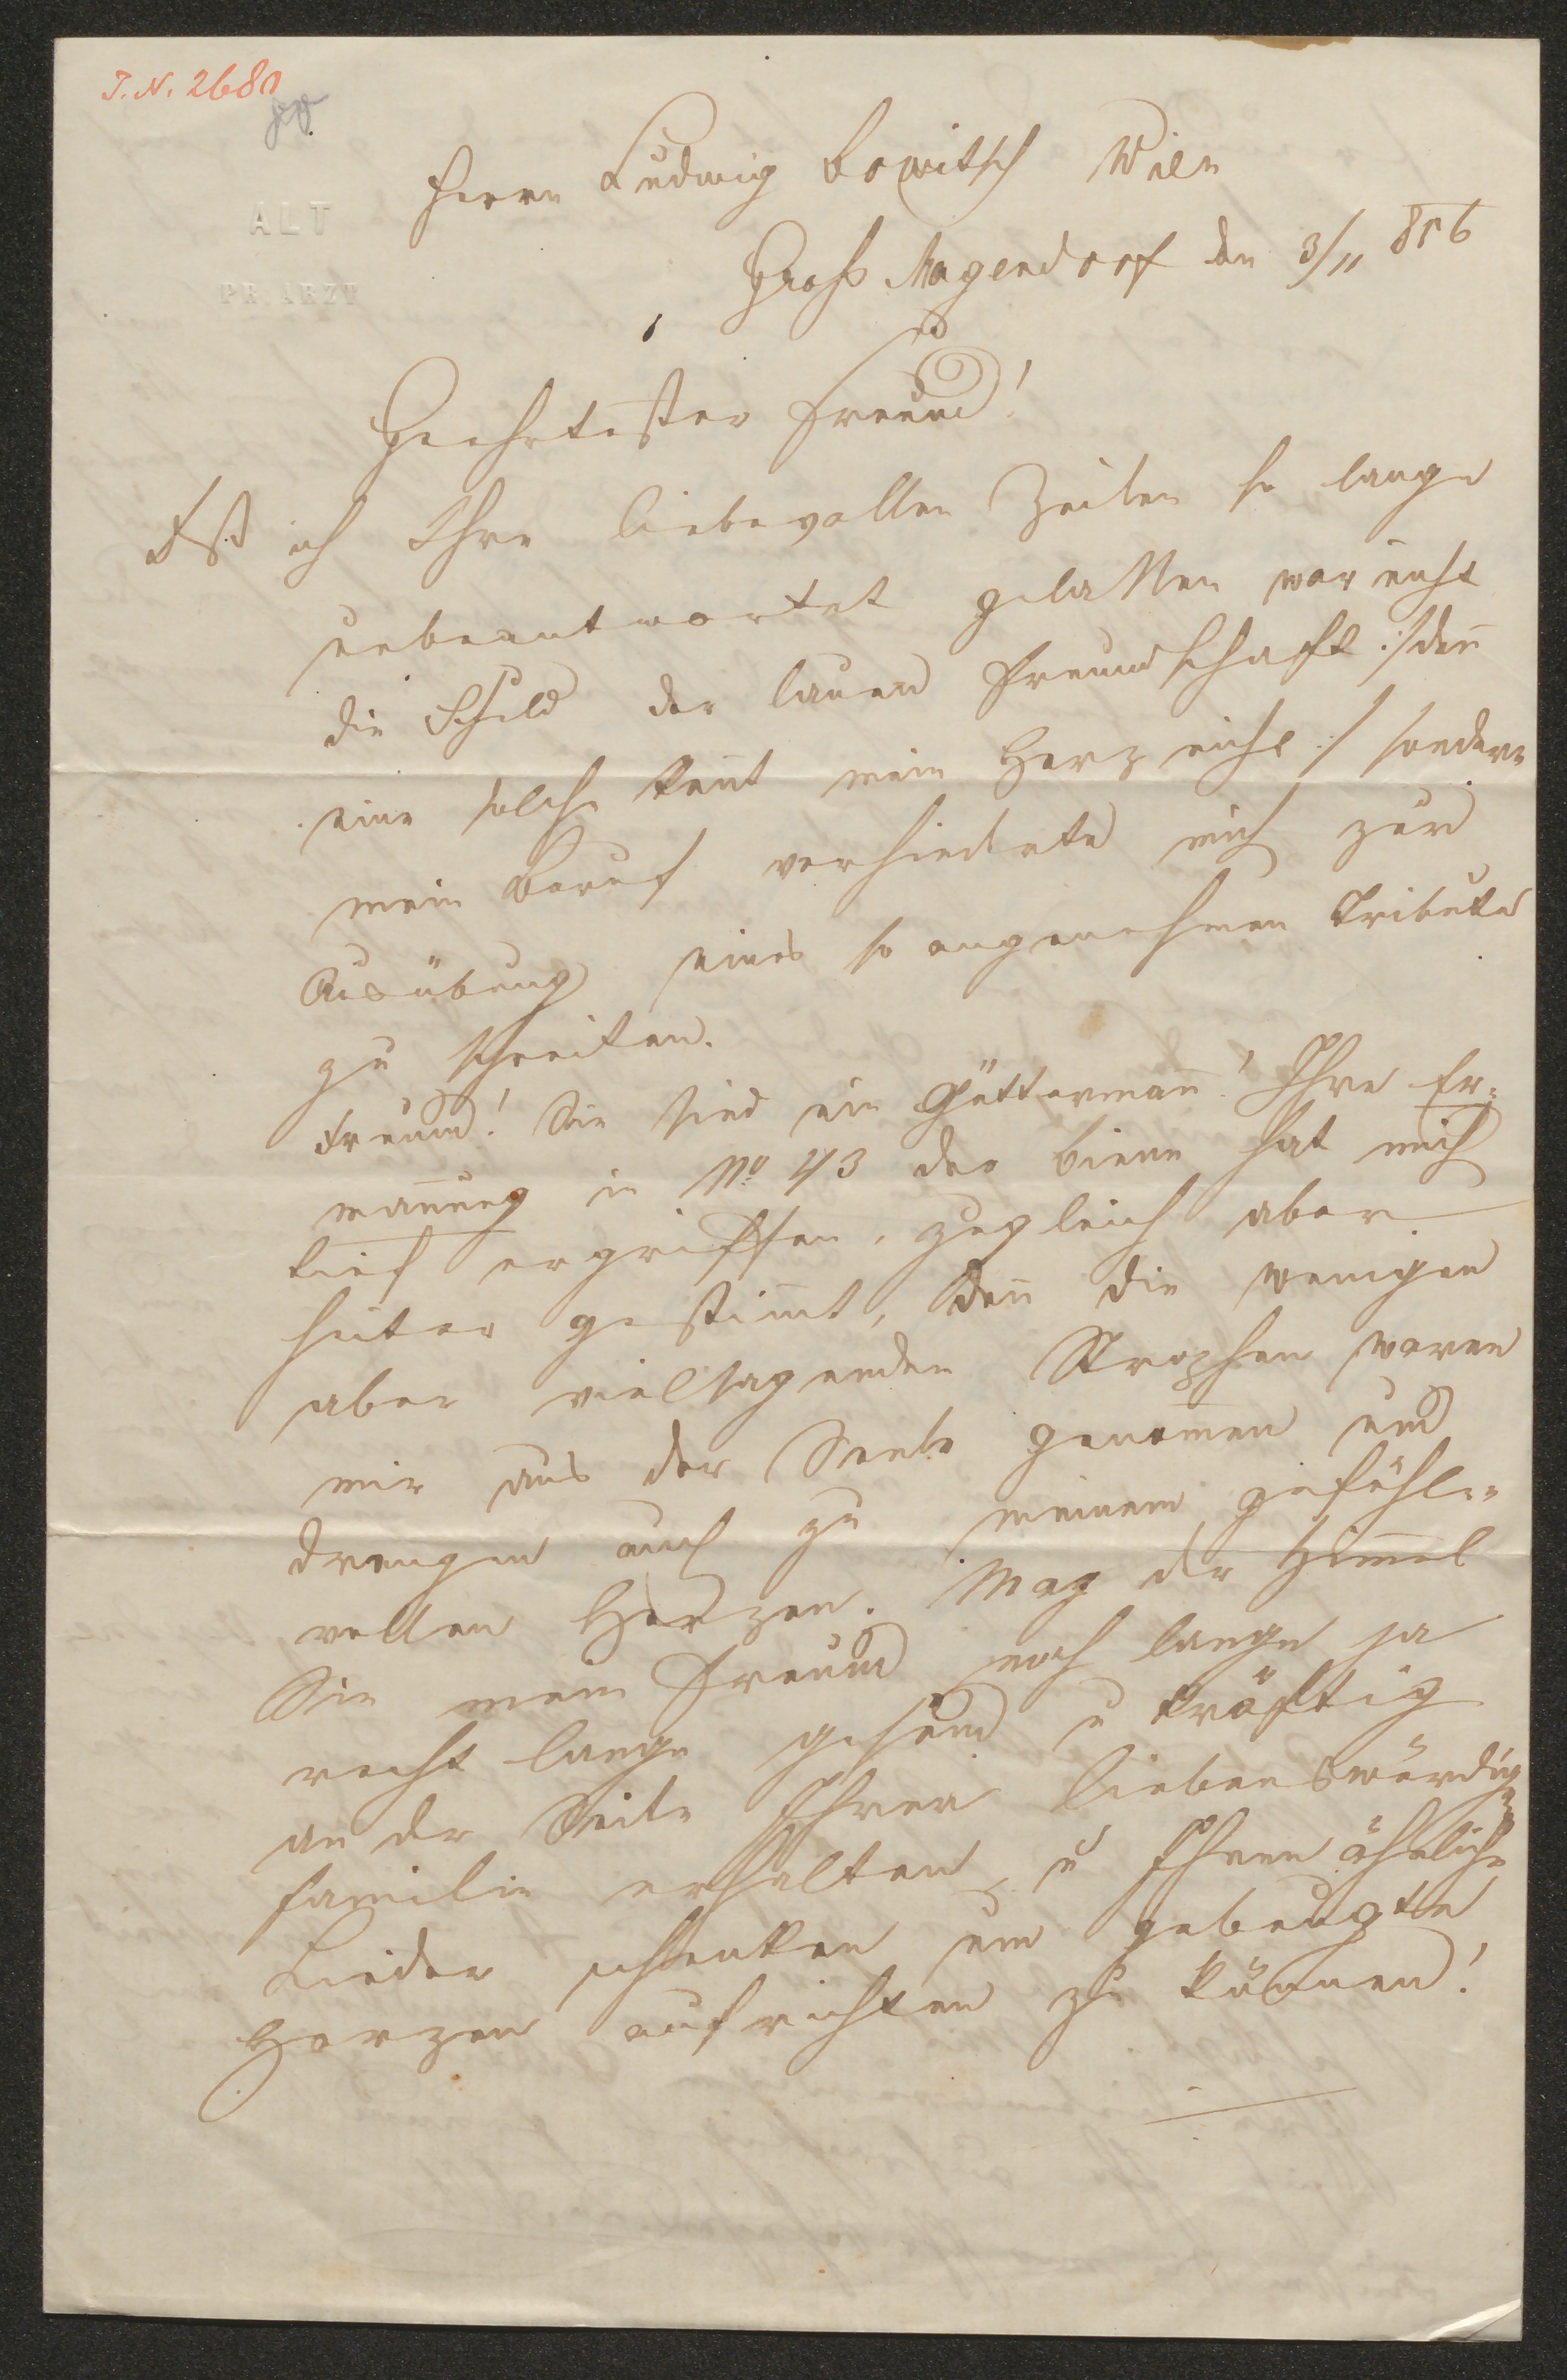 J. N. 2680
ALT
PR. ARZT
Herrn Ludwig Bowitsch Wien
Groß Magendorf den 3/11 856
Geehrtester Freund!
Daß ich Ihre liebevollen Zeilen so lange
unbeantwortet gelassen war nicht
die Schuld der lauen Freundschaft :/ den̄
eine solche ken̄t mein Herz nicht :/ sondern
mein Beruf verhinderte mich zur
Ausübung eines so angenehmen Tributes
zu schreiten.
Freund! Sie sind ein Göttermañ! Ihre Er-
mañung in No 43 der Biene hat mich
tief ergriffen, zugleich aber
heiter gestim̄t, den̄ die wenigen
aber vielsagenden Strophen waren
mir aus der Seele genom̄en und
drangen auch zu meinem gefühl-
vollen Herzen. Mag der Him̄el
Sie mein Freund noch lange ja
recht lange gesund u kräftig
an der Seite Ihrer liebenswürdigen
Familie erhalten, u Ihnen ähnliche
Lieder schenken um gebeugte
Herzen aufrichten zu können!